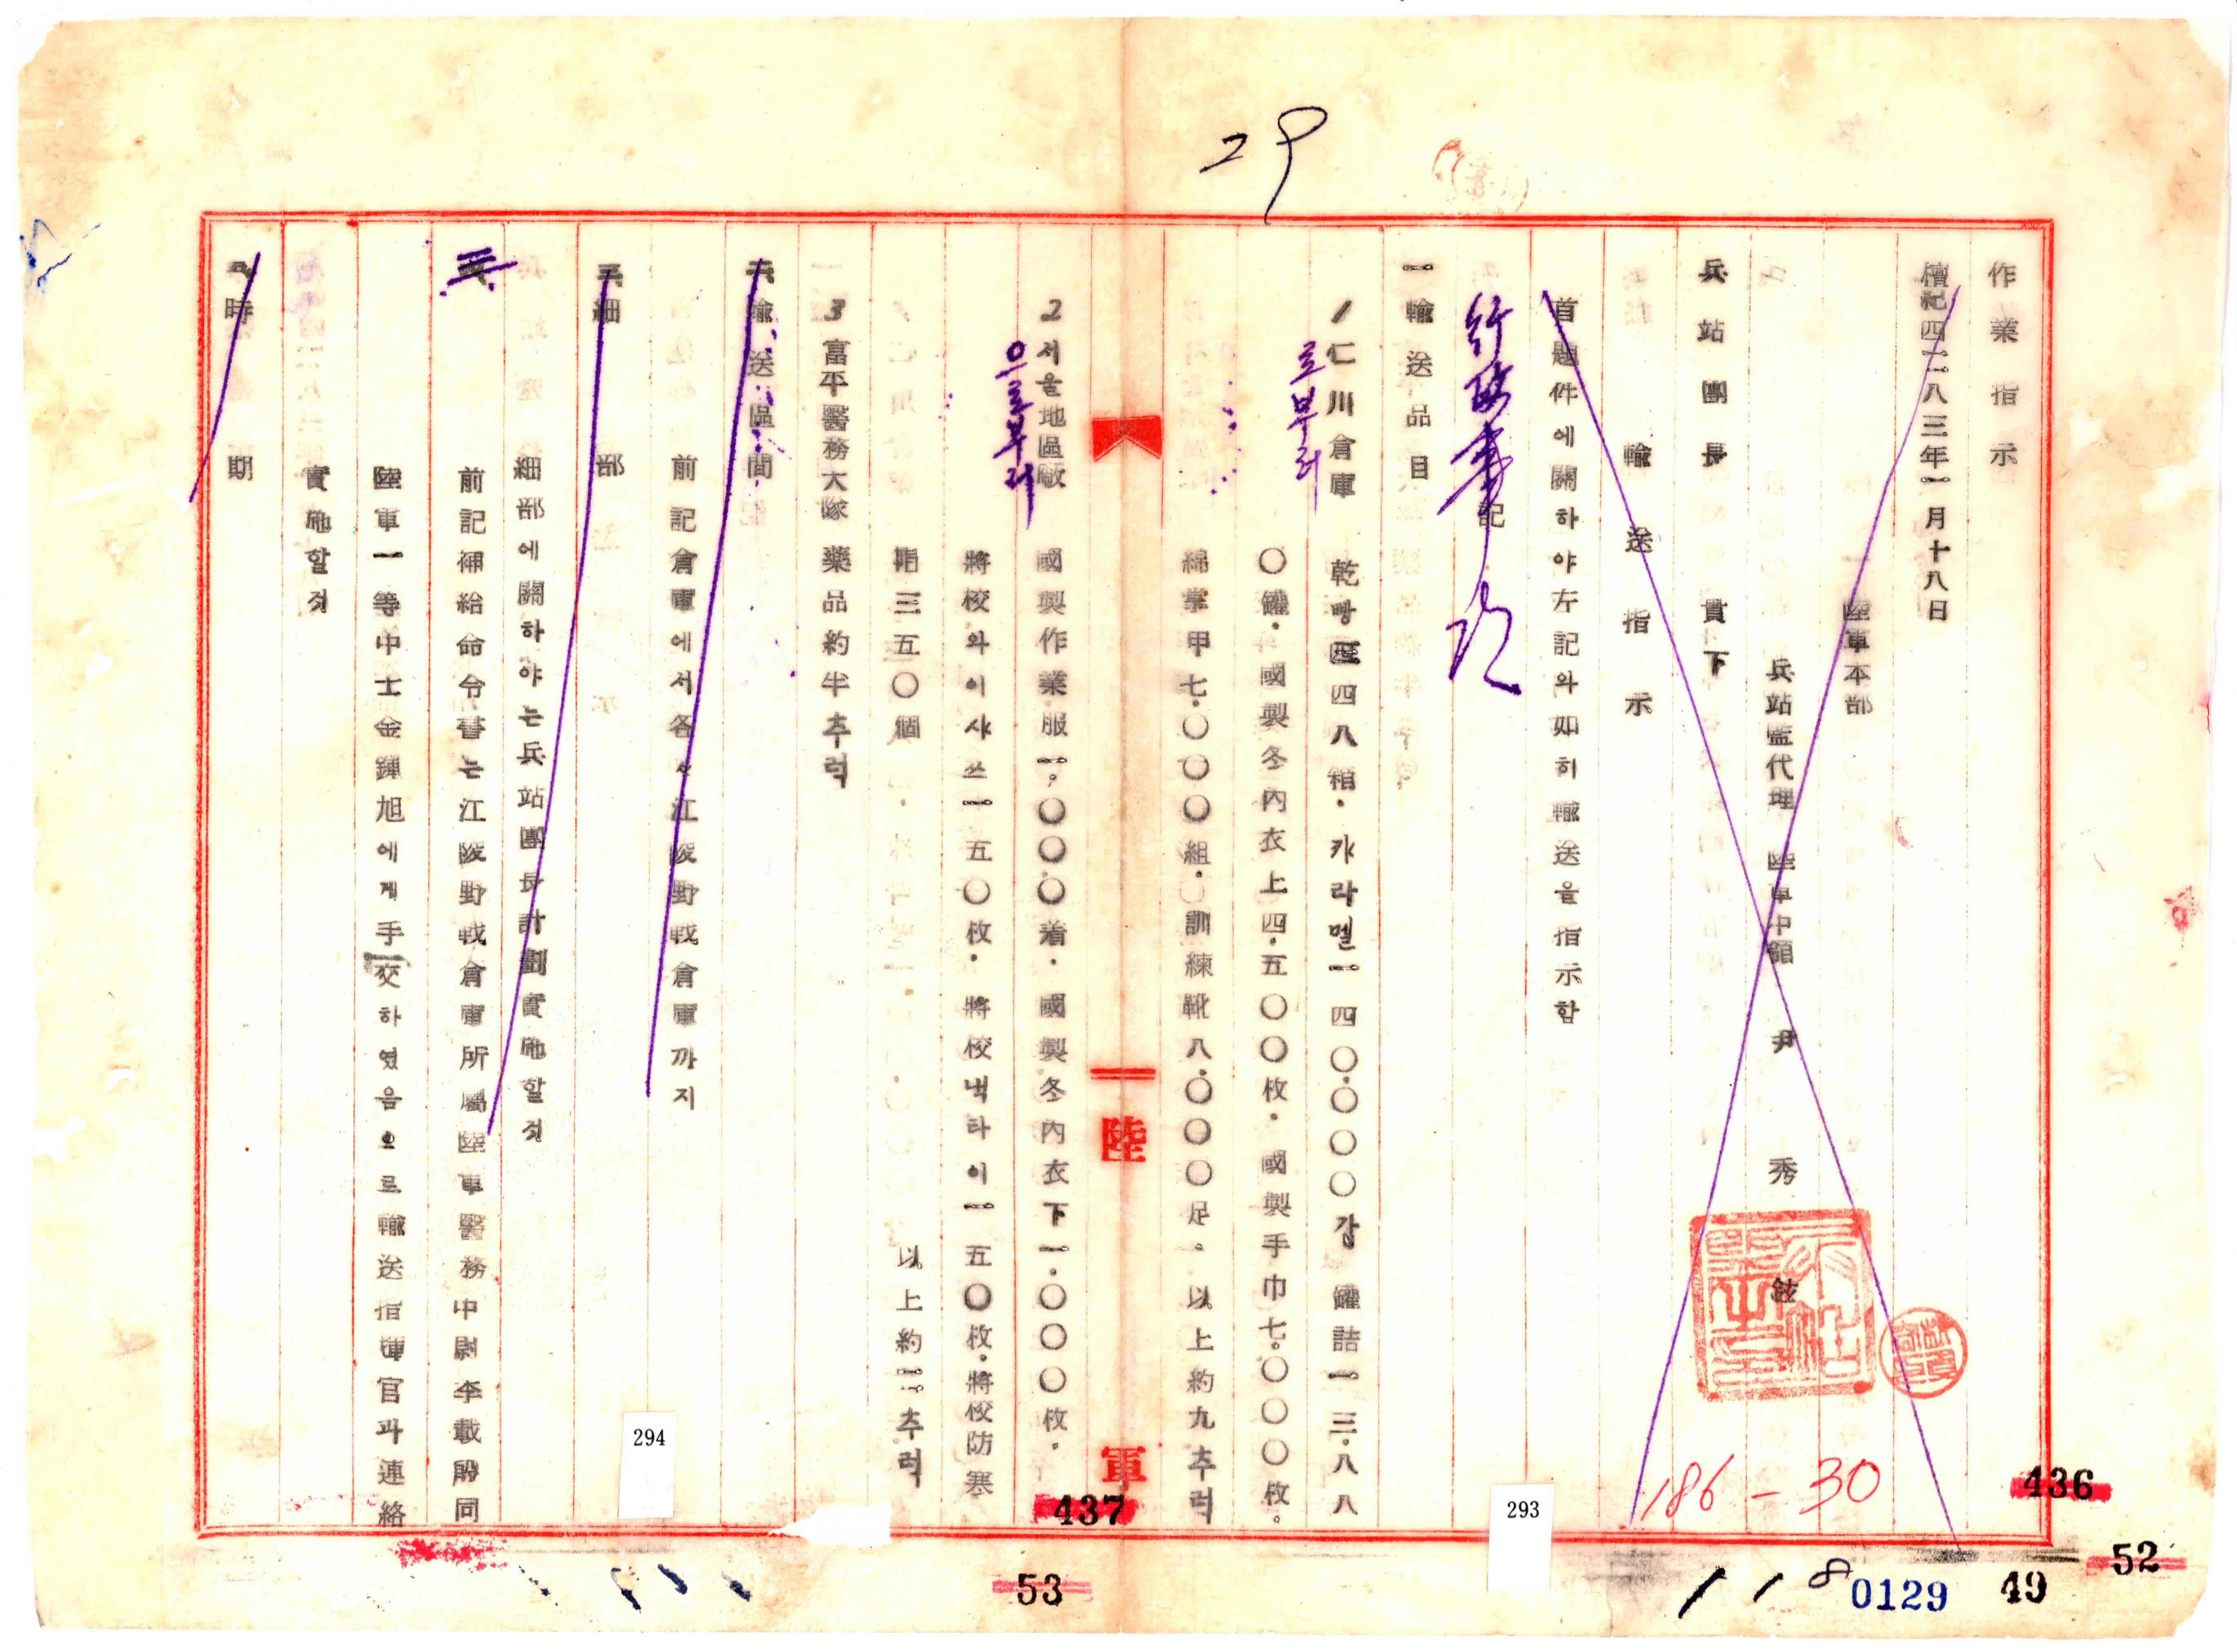 29
作業指示
檀紀四二八三年一月十八日
陸軍本部
兵站監代理 陸軍中領 尹秀鉉
兵站團長 貫下
輸送指示
首題件에關하야左記와如히輸送을指示함
記
一輸送品目
1仁川倉庫 乾빵 四八箱・카라멜一四〇.〇〇〇갑 罐詰一三.八八
로부터
〇罐・國製冬內衣上四.五〇〇枚・國製手巾七.〇〇〇枚。
綿掌甲七.〇〇〇組・訓練靴八.〇〇〇足。以上約九추럭
2서울地區 國製作業服一.〇〇〇着・國製冬內衣下一.〇〇〇枚。
으로부터
將校와이샤쓰一五〇枚・將校넥타이一五〇枚.將校防寒
帽三五〇個 以上約二추럭
3富平醫務大隊 藥品約半추럭
輸送區間
前記倉庫에서各々江陵野戰倉庫까지
細部
細部에關하야는兵站團長計劃實施할것
前記補給命令書는江陵野戰倉庫所屬陸軍醫務中尉李載殷同
陸軍一等中士金鍾旭에게手交하였음으로輸送指揮官과連絡
實施할것
時期
陸軍
186-30
436
437
293
294
52
53
49
0129
118